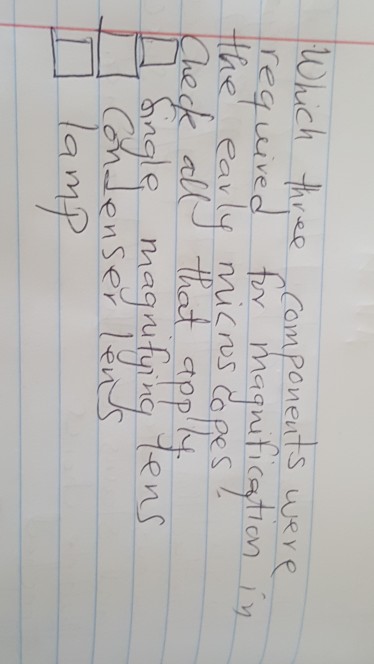 Which three components were
required for magnification in
the early microscopes?
Check all that apply
Single magnifying lens
Condenser lens
lamp